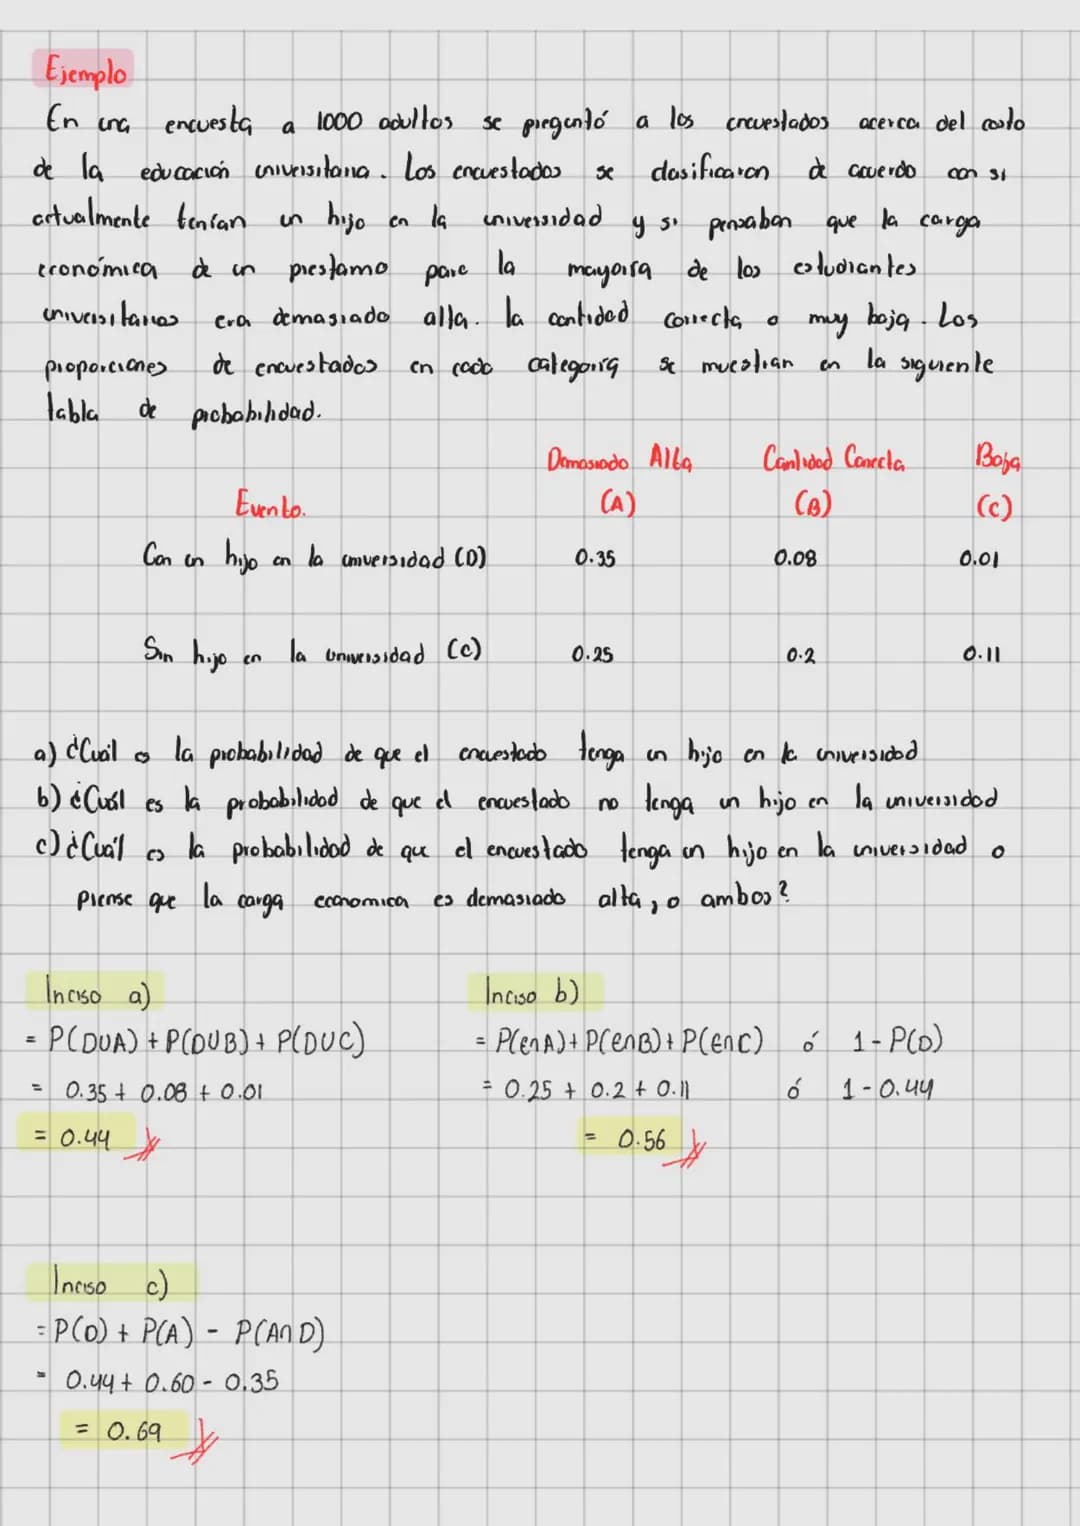 Ejemplo
En una encuesta a 1000 adultos se preguntó a los encuestados acerca del costo
de la educación universitaria. Los encuestados se clasificaron de acuerdo con si
actualmente tenían un hijo en la universidad y si pensaban que la carga
económica de un prestamo para la mayoría de los estudiantes
universitarios era demasiado alta. la cantidad correcta o muy baja. Las
proporciones de encuestados en cada categoría se muestran en la siguiente
tabla de probabilidad.
Demasiado Alta Cantidad Correcta Baja
Evento. (A) (B) (C)
Con un hijo en la universidad (D) 0.35 0.08 0.01
Sin hijo en la universidad (C) 0.25 0.2 0.11
a) ¿Cuál es la probabilidad de que el encuestado tenga un hijo en la universidad
b) ¿Cuál es la probabilidad de que el encuestado no tenga un hijo en la universidad
c) ¿Cuál es la probabilidad de que el encuestado tenga un hijo en la universidad o
piense que la carga economica es demasiado alta, o ambos?
Inciso a)
= P(D∪A) + P(D∪B) + P(D∪C)
= 0.35 + 0.08 + 0.01
= 0.44
Inciso b)
= P(E∩A) + P(E∩B) + P(E∩C) ó 1 - P(D)
= 0.25 + 0.2 + 0.11 ó 1 - 0.44
= 0.56
Inciso c)
= P(D) + P(A) - P(A∩D)
= 0.44 + 0.60 - 0.35
= 0.69